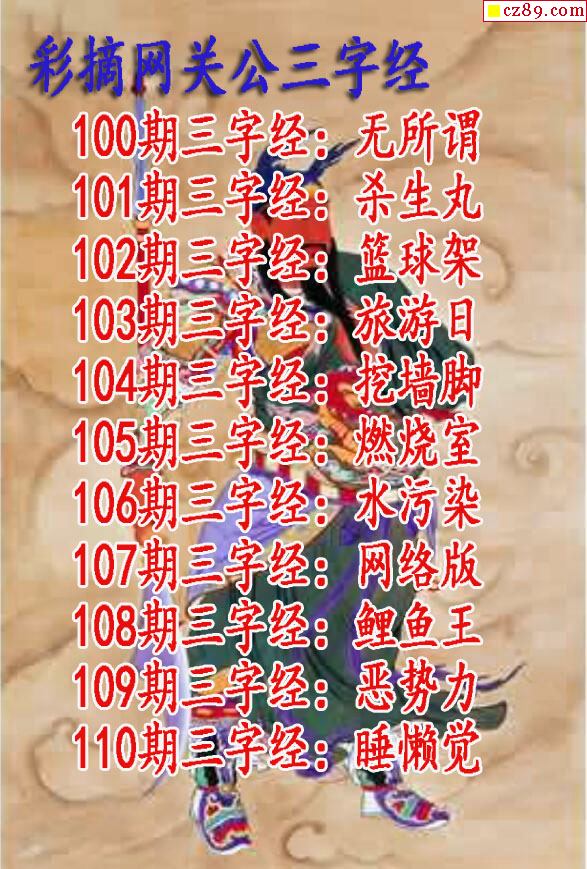 cz89.com
彩摘网关公三字经
100期三字经：无所谓
101期三字经：杀生丸
102期三字经：篮球架
103期三字经：旅游日
104期三字经：挖墙脚
105期三字经：燃烧室
106期三字经：水污染
107期三字经：网络版
108期三字经：鲤鱼王
109期三字经：恶势力
110期三字经：睡懒觉